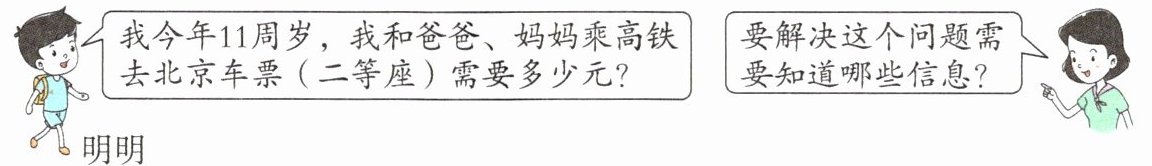 我今年11周岁，我和爸爸、妈妈乘高铁
去北京车票（二等座）需要多少元？
要解决这个问题需
要知道哪些信息？
明明